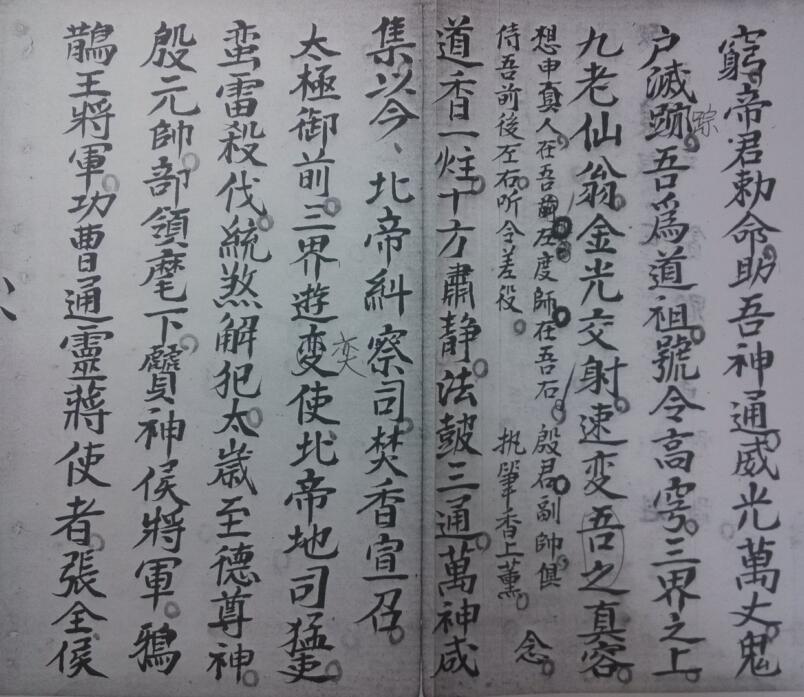 窮帝君勅命助吾神通威光萬丈鬼
户滅跡。吾爲道祖。號令高穹。三界之上。
踪
九老仙翁。金光交射。速变吾之真容。
想申真人。在吾前左。度師在吾右。殷君副帥俱
侍吾前後左右听令差役。執筆香上薰。念。
道香一炷。十方肅静。法鼓三通。萬神咸
集。以今、北帝糾察司。焚香宣召。
太極御前。三界遊变使北帝地司猛吏
奕
蛮雷殺伐。統煞解犯。太歲至德尊神。
殷元帥。部領麾下。鬢神侯將軍。鴉
鵲王將軍。功曹通靈蔣使者。張全侯